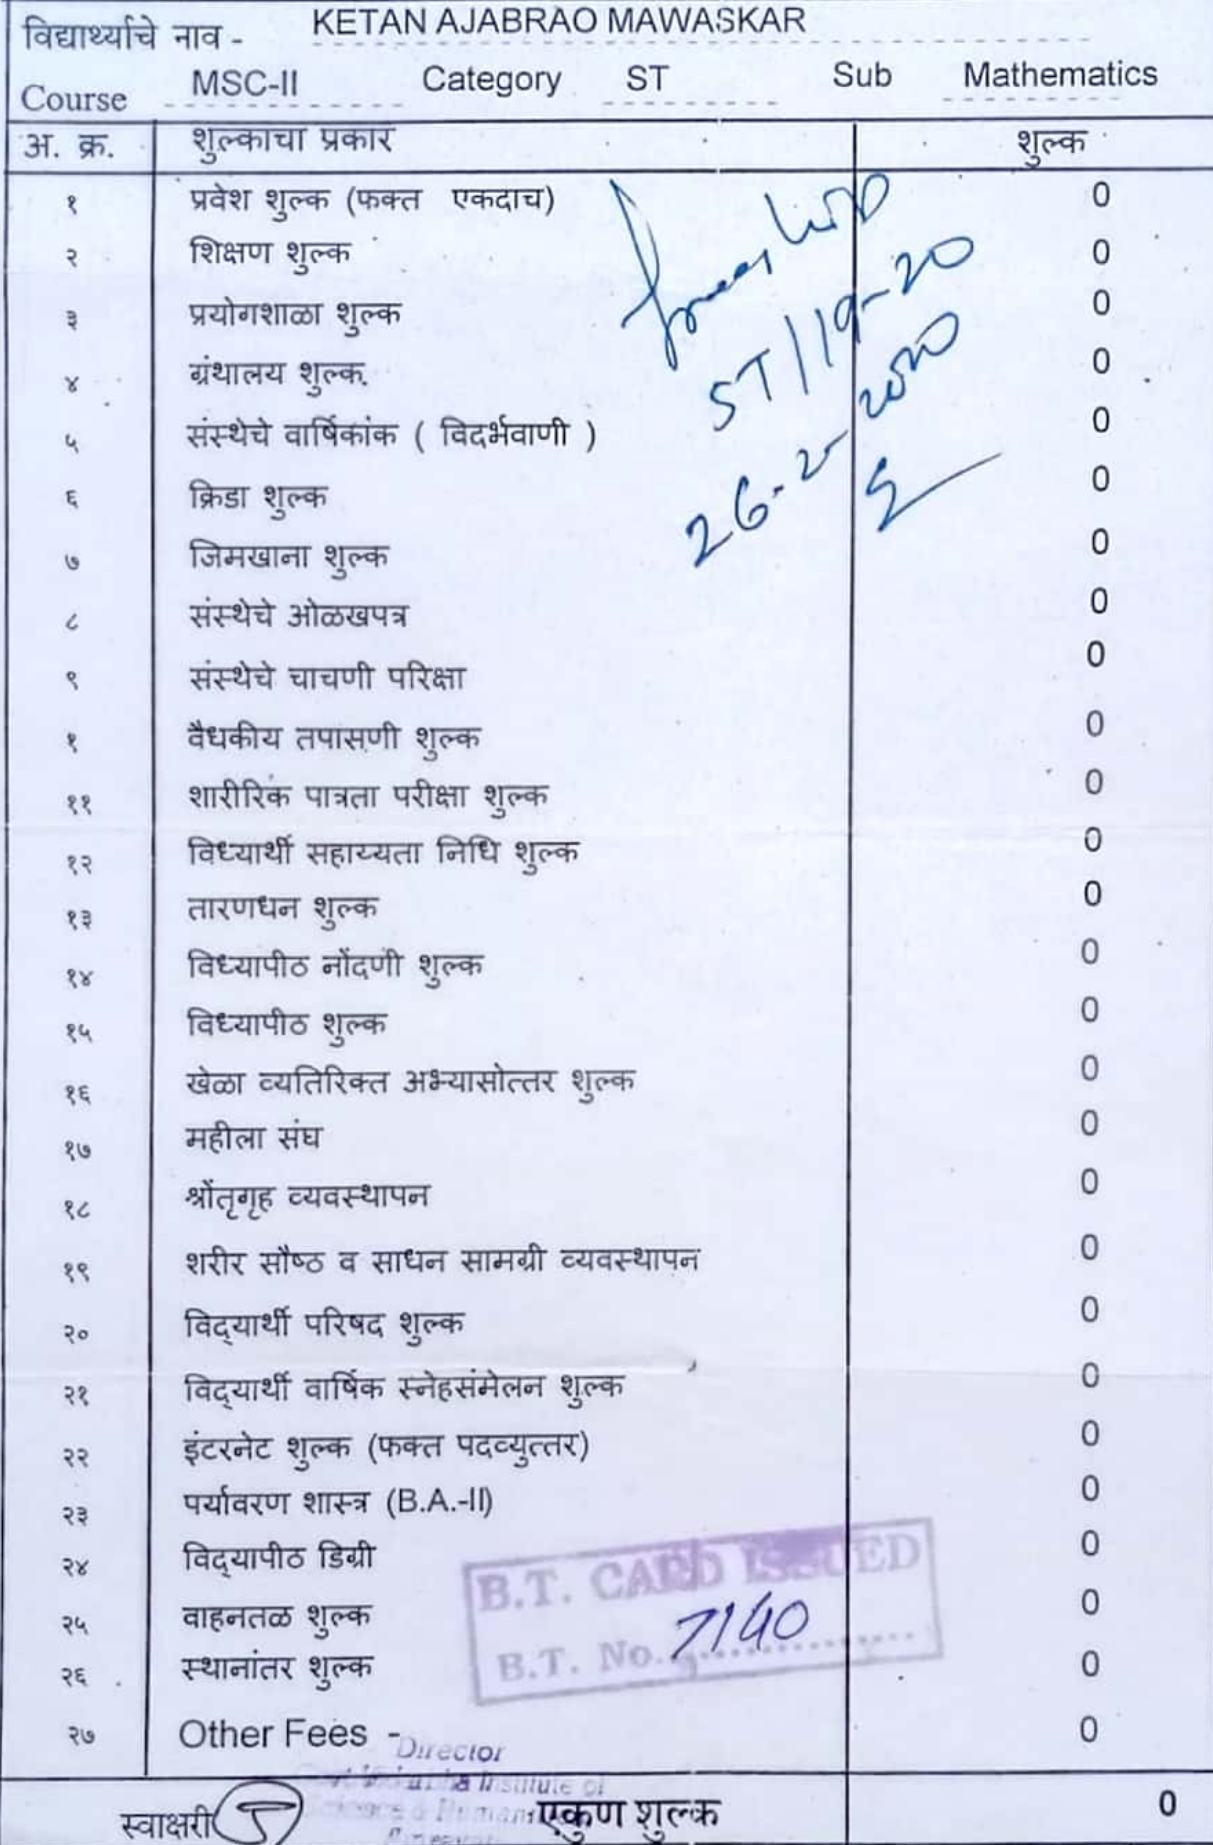 विद्यार्थ्याचे नाव - KETAN AJABRAO MAWASKAR
Course MSC-II Category ST Sub Mathematics
अ. क्र. शुल्काचा प्रकार शुल्क
१ प्रवेश शुल्क (फक्त एकदाच) 0
२ शिक्षण शुल्क 0
३ प्रयोगशाळा शुल्क 0
४ ग्रंथालय शुल्क 0
५ संस्थेचे वार्षिकांक ( विदर्भवाणी ) 0
६ क्रिडा शुल्क 0
७ जिमखाना शुल्क 0
८ संस्थेचे ओळखपत्र 0
९ संस्थेचे चाचणी परिक्षा 0
१ वैधकीय तपासणी शुल्क 0
११ शारीरिक पात्रता परीक्षा शुल्क 0
१२ विध्यार्थी सहाय्यता निधि शुल्क 0
१३ तारणधन शुल्क 0
१४ विध्यापीठ नोंदणी शुल्क 0
१५ विध्यापीठ शुल्क 0
१६ खेळा व्यतिरिक्त अभ्यासोत्तर शुल्क 0
१७ महीला संघ 0
१८ श्रोंतृगृह व्यवस्थापन 0
१९ शरीर सौष्ठ व साधन सामग्री व्यवस्थापन 0
२० विद्‌यार्थी परिषद शुल्क 0
२१ विद्‌यार्थी वार्षिक स्नेहसंमेलन शुल्क 0
२२ इंटरनेट शुल्क (फक्त पदव्युत्तर) 0
२३ पर्यावरण शास्त्र (B.A.-II) 0
२४ विद्‌यापीठ डिग्री 0
२५ वाहनतळ शुल्क 0
२६ स्थानांतर शुल्क 0
२७ Other Fees - 0
स्वाक्षरी एकुण शुल्क 0
ST/19-20
26-2-2020
B.T. CARD ISSUED
B.T. No. 7140
Director
Institute of